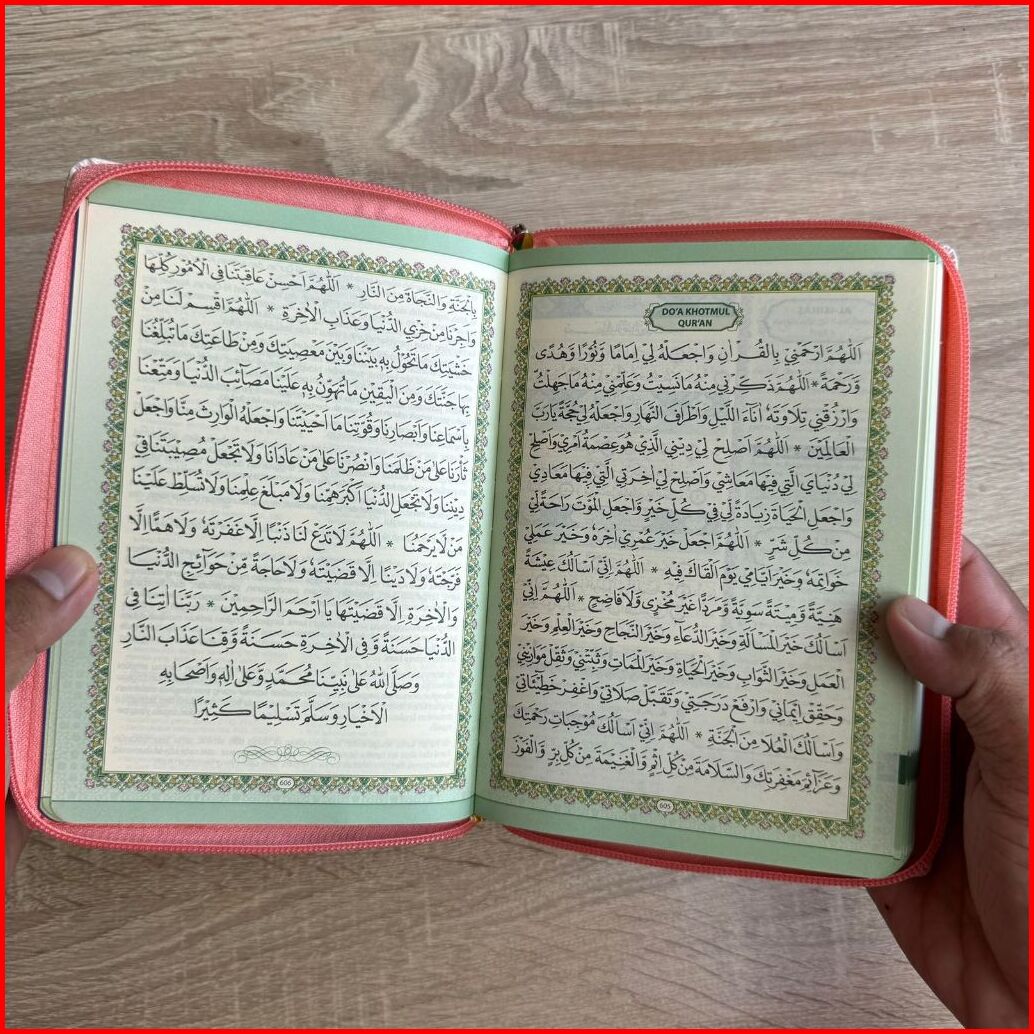 DO'A KHOTMUL
QUR'AN
اَللّٰهُمَّ ارْحَمْنِيْ بِالْقُرْاٰنِ وَاجْعَلْهُ لِيْ اِمَامًا وَنُوْرًا وَهُدًى
وَرَحْمَةً * اَللّٰهُمَّ ذَكِّرْنِيْ مِنْهُ مَا نَسِيْتُ وَعَلِّمْنِيْ مِنْهُ مَا جَهِلْتُ
وَارْزُقْنِيْ تِلَاوَتَهٗ اٰنَآءَ اللَّيْلِ وَاَطْرَافَ النَّهَارِ وَاجْعَلْهُ لِيْ حُجَّةً يَارَبَّ
الْعَالَمِيْنَ * اَللّٰهُمَّ اَصْلِحْ لِيْ دِيْنِيَ الَّذِيْ هُوَ عِصْمَةُ اَمْرِيْ وَاَصْلِحْ
لِيْ دُنْيَايَ الَّتِيْ فِيْهَا مَعَاشِيْ وَاَصْلِحْ لِيْ اٰخِرَتِي الَّتِيْ فِيْهَا مَعَادِيْ
وَاجْعَلِ الْحَيَاةَ زِيَادَةً لِيْ فِيْ كُلِّ خَيْرٍ وَاجْعَلِ الْمَوْتَ رَاحَةً لِيْ
مِنْ كُلِّ شَرٍّ * اَللّٰهُمَّ اجْعَلْ خَيْرَ عُمْرِيْ اٰخِرَهٗ وَخَيْرَ عَمَلِيْ
خَوَاتِمَهٗ وَخَيْرَ اَيَّامِيْ يَوْمَ اَلْقَاكَ فِيْهِ * اَللّٰهُمَّ اِنِّيْ اَسْأَلُكَ عِيْشَةً
هَنِيَّةً وَّمِيْتَةً سَوِيَّةً وَّمَرَدًّا غَيْرَ مُخْزٍى وَلَا فَاضِحٍ * اَللّٰهُمَّ اِنِّيْ
اَسْأَلُكَ خَيْرَ الْمَسْأَلَةِ وَخَيْرَ الدُّعَآءِ وَخَيْرَ النَّجَاحِ وَخَيْرَ الْعِلْمِ وَخَيْرَ
الْعَمَلِ وَخَيْرَ الثَّوَابِ وَخَيْرَ الْحَيَاةِ وَخَيْرَ الْمَمَاتِ وَثَبِّتْنِيْ وَثَقِّلْ مَوَازِيْنِيْ
وَحَقِّقْ اِيْمَانِيْ وَارْفَعْ دَرَجَتِيْ وَتَقَبَّلْ صَلَاتِيْ وَاغْفِرْ خَطِيْئَاتِيْ
وَاَسْأَلُكَ الْعُلَا مِنَ الْجَنَّةِ * اَللّٰهُمَّ اِنِّيْ اَسْأَلُكَ مُوْجِبَاتِ رَحْمَتِكَ
وَعَزَآئِمَ مَغْفِرَتِكَ وَالسَّلَامَةَ مِنْ كُلِّ اِثْمٍ وَّالْغَنِيْمَةَ مِنْ كُلِّ بِرٍّ وَّالْفَوْزَ
605
بِالْجَنَّةِ وَالنَّجَاةَ مِنَ النَّارِ * اَللّٰهُمَّ اَحْسِنْ عَاقِبَتَنَا فِى الْاُمُوْرِ كُلِّهَا
وَاَجِرْنَا مِنْ خِزْيِ الدُّنْيَا وَعَذَابِ الْاٰخِرَةِ * اَللّٰهُمَّ اقْسِمْ لَنَا مِنْ
خَشْيَتِكَ مَا تَحُوْلُ بِهٖ بَيْنَنَا وَبَيْنَ مَعْصِيَتِكَ وَمِنْ طَاعَتِكَ مَا تُبَلِّغُنَا
بِهَا جَنَّتَكَ وَمِنَ الْيَقِيْنِ مَا تُهَوِّنُ بِهٖ عَلَيْنَا مَصَآئِبَ الدُّنْيَا وَمَتِّعْنَا
بِاَسْمَاعِنَا وَاَبْصَارِنَا وَقُوَّتِنَا مَا اَحْيَيْتَنَا وَاجْعَلْهُ الْوَارِثَ مِنَّا وَاجْعَلْ
ثَأْرَنَا عَلٰى مَنْ ظَلَمَنَا وَانْصُرْنَا عَلٰى مَنْ عَادَانَا وَلَا تَجْعَلْ مُصِيْبَتَنَا فِيْ
دِيْنِنَا وَلَا تَجْعَلِ الدُّنْيَا اَكْبَرَ هَمِّنَا وَلَا مَبْلَغَ عِلْمِنَا وَلَا تُسَلِّطْ عَلَيْنَا
مَنْ لَا يَرْحَمُنَا * اَللّٰهُمَّ لَا تَدَعْ لَنَا ذَنْبًا اِلَّا غَفَرْتَهٗ وَلَا هَمًّا اِلَّا
فَرَّجْتَهٗ وَلَا دَيْنًا اِلَّا قَضَيْتَهٗ وَلَا حَاجَةً مِّنْ حَوَآئِجِ الدُّنْيَا
وَالْاٰخِرَةِ اِلَّا قَضَيْتَهَا يَا اَرْحَمَ الرَّاحِمِيْنَ * رَبَّنَا اٰتِنَا فِى
الدُّنْيَا حَسَنَةً وَّفِى الْاٰخِرَةِ حَسَنَةً وَّقِنَا عَذَابَ النَّارِ
وَصَلَّى اللّٰهُ عَلٰى نَبِيِّنَا مُحَمَّدٍ وَّعَلٰى اٰلِهٖ وَاَصْحَابِهِ
الْاَخْيَارِ وَسَلَّمَ تَسْلِيْمًا كَثِيْرًا
606